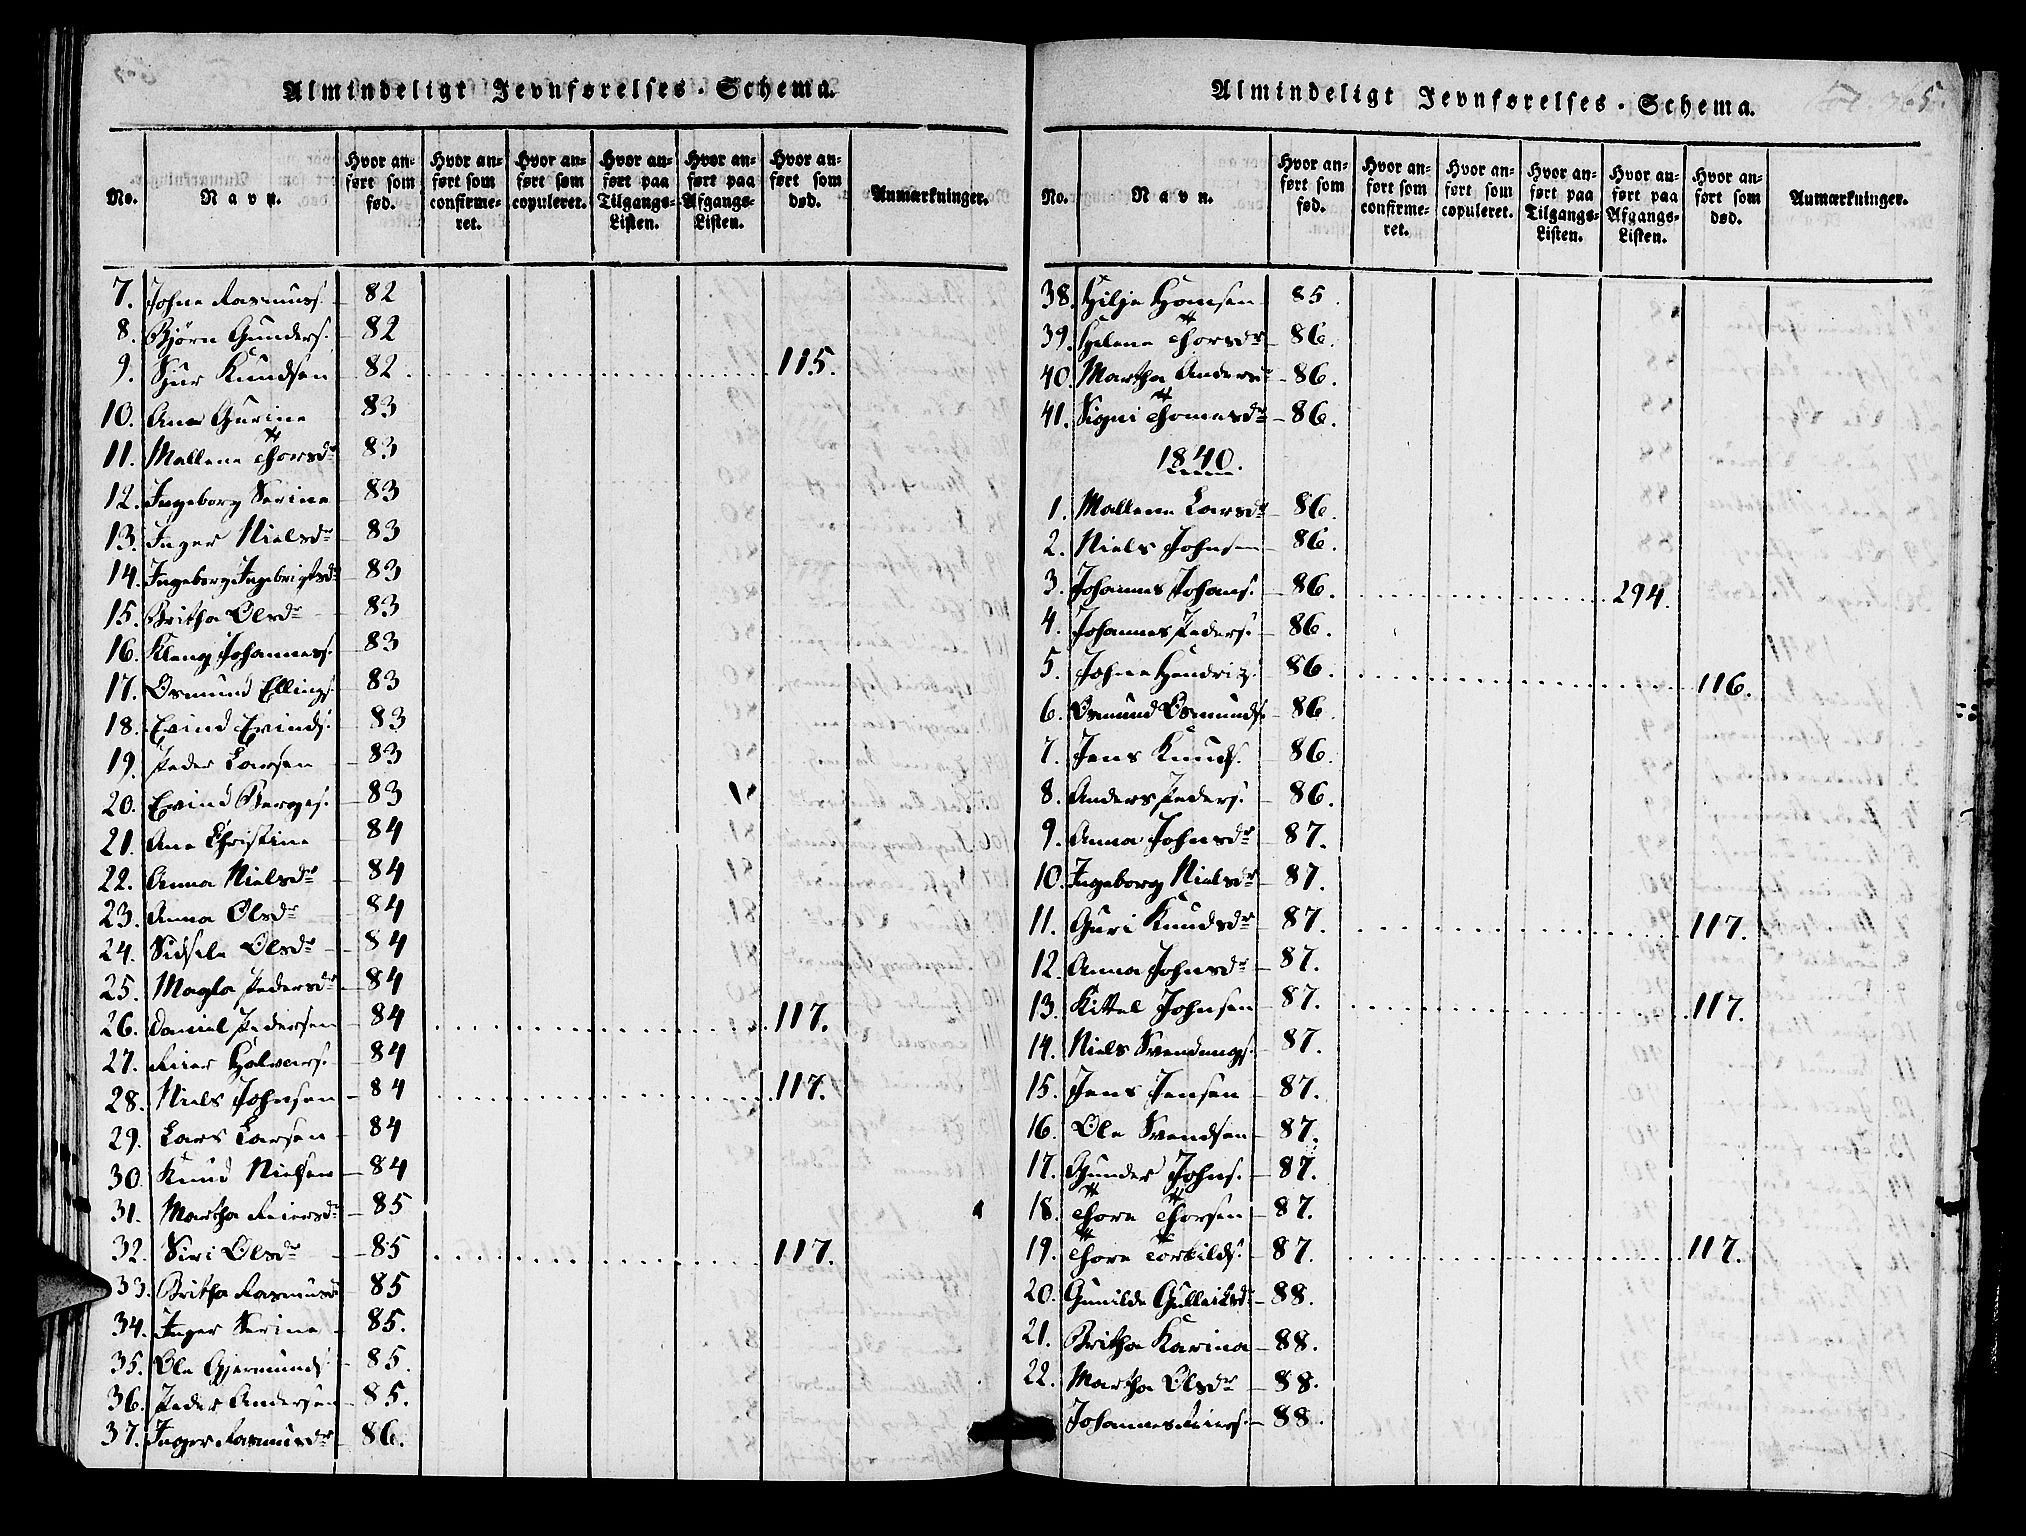 Almindeligt Jevnførelses-Schema.
No. Navn. Hvor anført som fød. Hvor anført som confirmeret. Hvor anført som copuleret. Hvor anført paa Tilgangs-Listen. Hvor anført paa Afgangs-Listen. Hvor anført som død. Anmærkninger.
7. Johne Rasmuss. 82
8. Bjørn Gunders. 82
9. Sjur Knudsen 82 115.
10. Ane Gurine 83
11. Mallene Thorsdr 83
12. Ingeborg Serine 83
13. Inger Nielsdr 83
14. Ingeborg Ingebrigtsdr 83
15. Britha Olsdr 83
16. Kleng Johannes. 83
17. Osmund Ellings. 83
18. Evind Evinds. 83
19. Peder Larsen 83
20. Evind Børges. 83
21. Ane Christine 84
22. Anna Nielsdr 84
23. Anna Olsdr 84
24. Sidsele Olsdr 84
25. Magla Pedersdr 84
26. Daniel Pedersen 84 117.
27. Reier Halvors. 84
28. Niels Johnsen 84 117.
29. Lars Larsen 84
30. Knud Nielsen 84
31. Martha Reiersdr 85
32. Siri Olsdr 85 117.
33. Britha Rasmusd 85
34. Inger Serine 85.
35. Ole Gjermunds. 85.
36. Peder Andersen 85.
37. Inger Rasmusdr 86.
Almindeligt Jevnførelses-Schema. 365.
No. Navn. Hvor anført som fød. Hvor anført som confirmeret. Hvor anført som copuleret. Hvor anført paa Tilgangs-Listen. Hvor anført paa Afgangs-Listen. Hvor anført som død. Anmærkninger.
38. Hilje Hansen 85.
39. Helene Thorsdr 86.
40. Martha Andersdr 86.
41. Signi Thomesdr 86.
1840.
1. Mallene Larsdr 86.
2. Niels Johnsen 86.
3. Johannes Johans. 86. 294.
4. Johannes Peders. 86.
5. Johne Hendrics. 86. 116.
6. Osmund Osmunds. 86.
7. Jens Knuds. 86.
8. Anders Peders. 86.
9. Anna Johnsdr 87.
10. Ingeborg Nielsdr 87.
11. Guri Knudsdr 87. 117.
12. Anna Johnsdr 87.
13. Kittel Johnsen 87. 117.
14. Niels Svendungs. 87.
15. Jens Jensen 87.
16. Ole Svendsen 87.
17. Gunder Johns. 87.
18. Thore Thorsen 87.
19. Thore Torkilds. 87. 117.
20. Gunilde Gulleiksdr 88.
21. Britha Karina 88.
22. Martha Olsdr 88.
Johannes Reiers. 88.